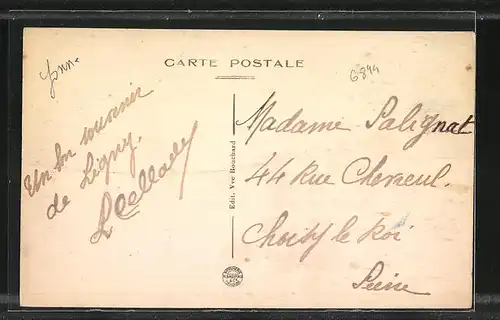 Yonn.
CARTE POSTALE
6844
Un bon souvenir
de Ligny.
Edit. Vve Bouchard
Madame Salignat
44 Rue Chevreul.
Choisy le Roi
Seine